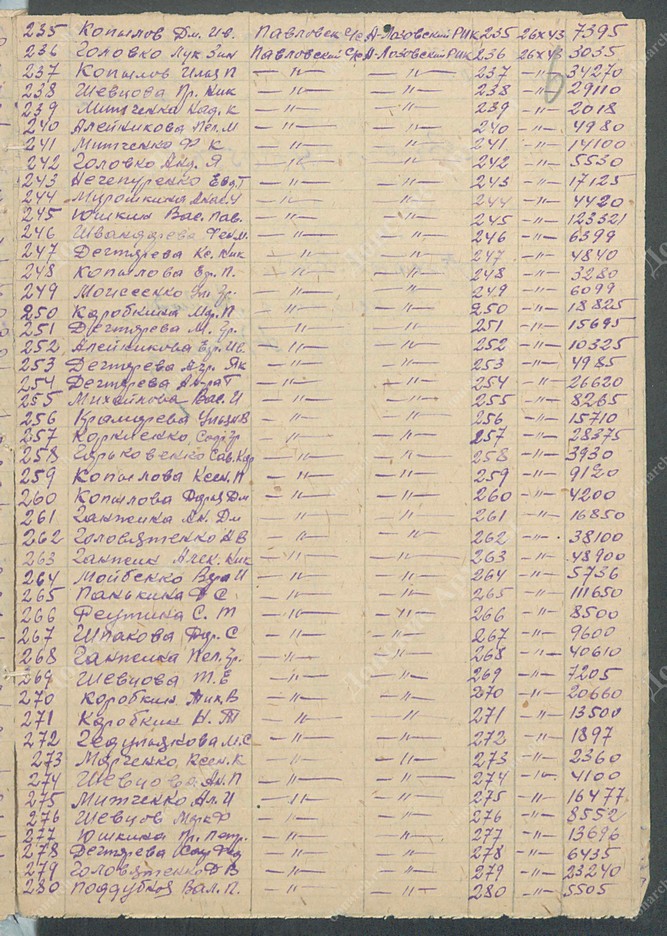 235 Копылов Дм. Ив. Павловск С/с А-Лозовский РИК 235 26 X 43 7395
236 Головко Лук. Зин Павловский С/с А-Лозовский РИК 236 26 X 43 3035
237 Копылов Илья П —"— —"— 237 —"— 34270
238 Шевцова Пр. Ник —"— —"— 238 —"— 29110
239 Митченко Над. К —"— —"— 239 —"— 2018
240 Алейникова Пел. М —"— —"— 240 —"— 4980
241 Митченко Ф К —"— —"— 241 —"— 14100
242 Головко Анд. Я —"— —"— 242 —"— 5530
243 Нечепуренко Евд Т —"— —"— 243 —"— 17125
244 Мирошкина —"— —"— 244 —"— 4420
245 Юшкин Вас. Пав. —"— —"— 245 —"— 123321
246 —"— —"— 246 —"— 6399
247 Дегтярева Кс. Ник —"— —"— 247 —"— 4840
248 Копылова Ев. П. —"— —"— 248 —"— 3280
249 Моисеенко Гр. —"— —"— 249 —"— 6099
250 Коробкина Мар. П —"— —"— 250 —"— 18825
251 Дегтярева М. Гр. —"— —"— 251 —"— 15695
252 Алейникова Ив. —"— —"— 252 —"— 10325
253 Дегтярева Як —"— —"— 253 —"— 4985
254 Дегтярева —"— —"— 254 —"— 26620
255 Михайлова Вас. И —"— —"— 255 —"— 8265
256 Крамарева Ульян В —"— —"— 256 —"— 15710
257 Корниенко —"— —"— 257 —"— 28375
258 Сав. —"— —"— 258 —"— 3930
259 Копылова Ксен. П —"— —"— 259 —"— 9120
260 Копылова Дарья Дм —"— —"— 260 —"— 4200
261 Ганжина Ан. Дм —"— —"— 261 —"— 16850
262 Головятенко А В —"— —"— 262 —"— 38100
263 Ганжин Алек. Ник —"— —"— 263 —"— 48900
264 И —"— —"— 264 —"— 5736
265 Панькина Ф С —"— —"— 265 —"— 111650
266 С. Т —"— —"— 266 —"— 8500
267 Шпакова С —"— —"— 267 —"— 9600
268 Ганжина Пел. Гр. —"— —"— 268 —"— 40610
269 Шевцова Т. Е —"— —"— 269 —"— 7205
270 Коробкин Тих В —"— —"— 270 —"— 20660
271 Коробкин Н. Т —"— —"— 271 —"— 13500
272 М. С —"— —"— 272 —"— 1897
273 Марченко Ксен. К —"— —"— 273 —"— 2360
274 Шевцова Ан. П —"— —"— 274 —"— 4100
275 Митченко Ал. И —"— —"— 275 —"— 16477
276 Шевцов Марк Ф —"— —"— 276 —"— 8552
277 Юшкина Пр. Петр. —"— —"— 277 —"— 13696
278 Дегтярева —"— —"— 278 —"— 6435
279 Головятенко Ф В —"— —"— 279 —"— 23240
280 Поддубная Вал. П. —"— —"— 280 —"— 5505